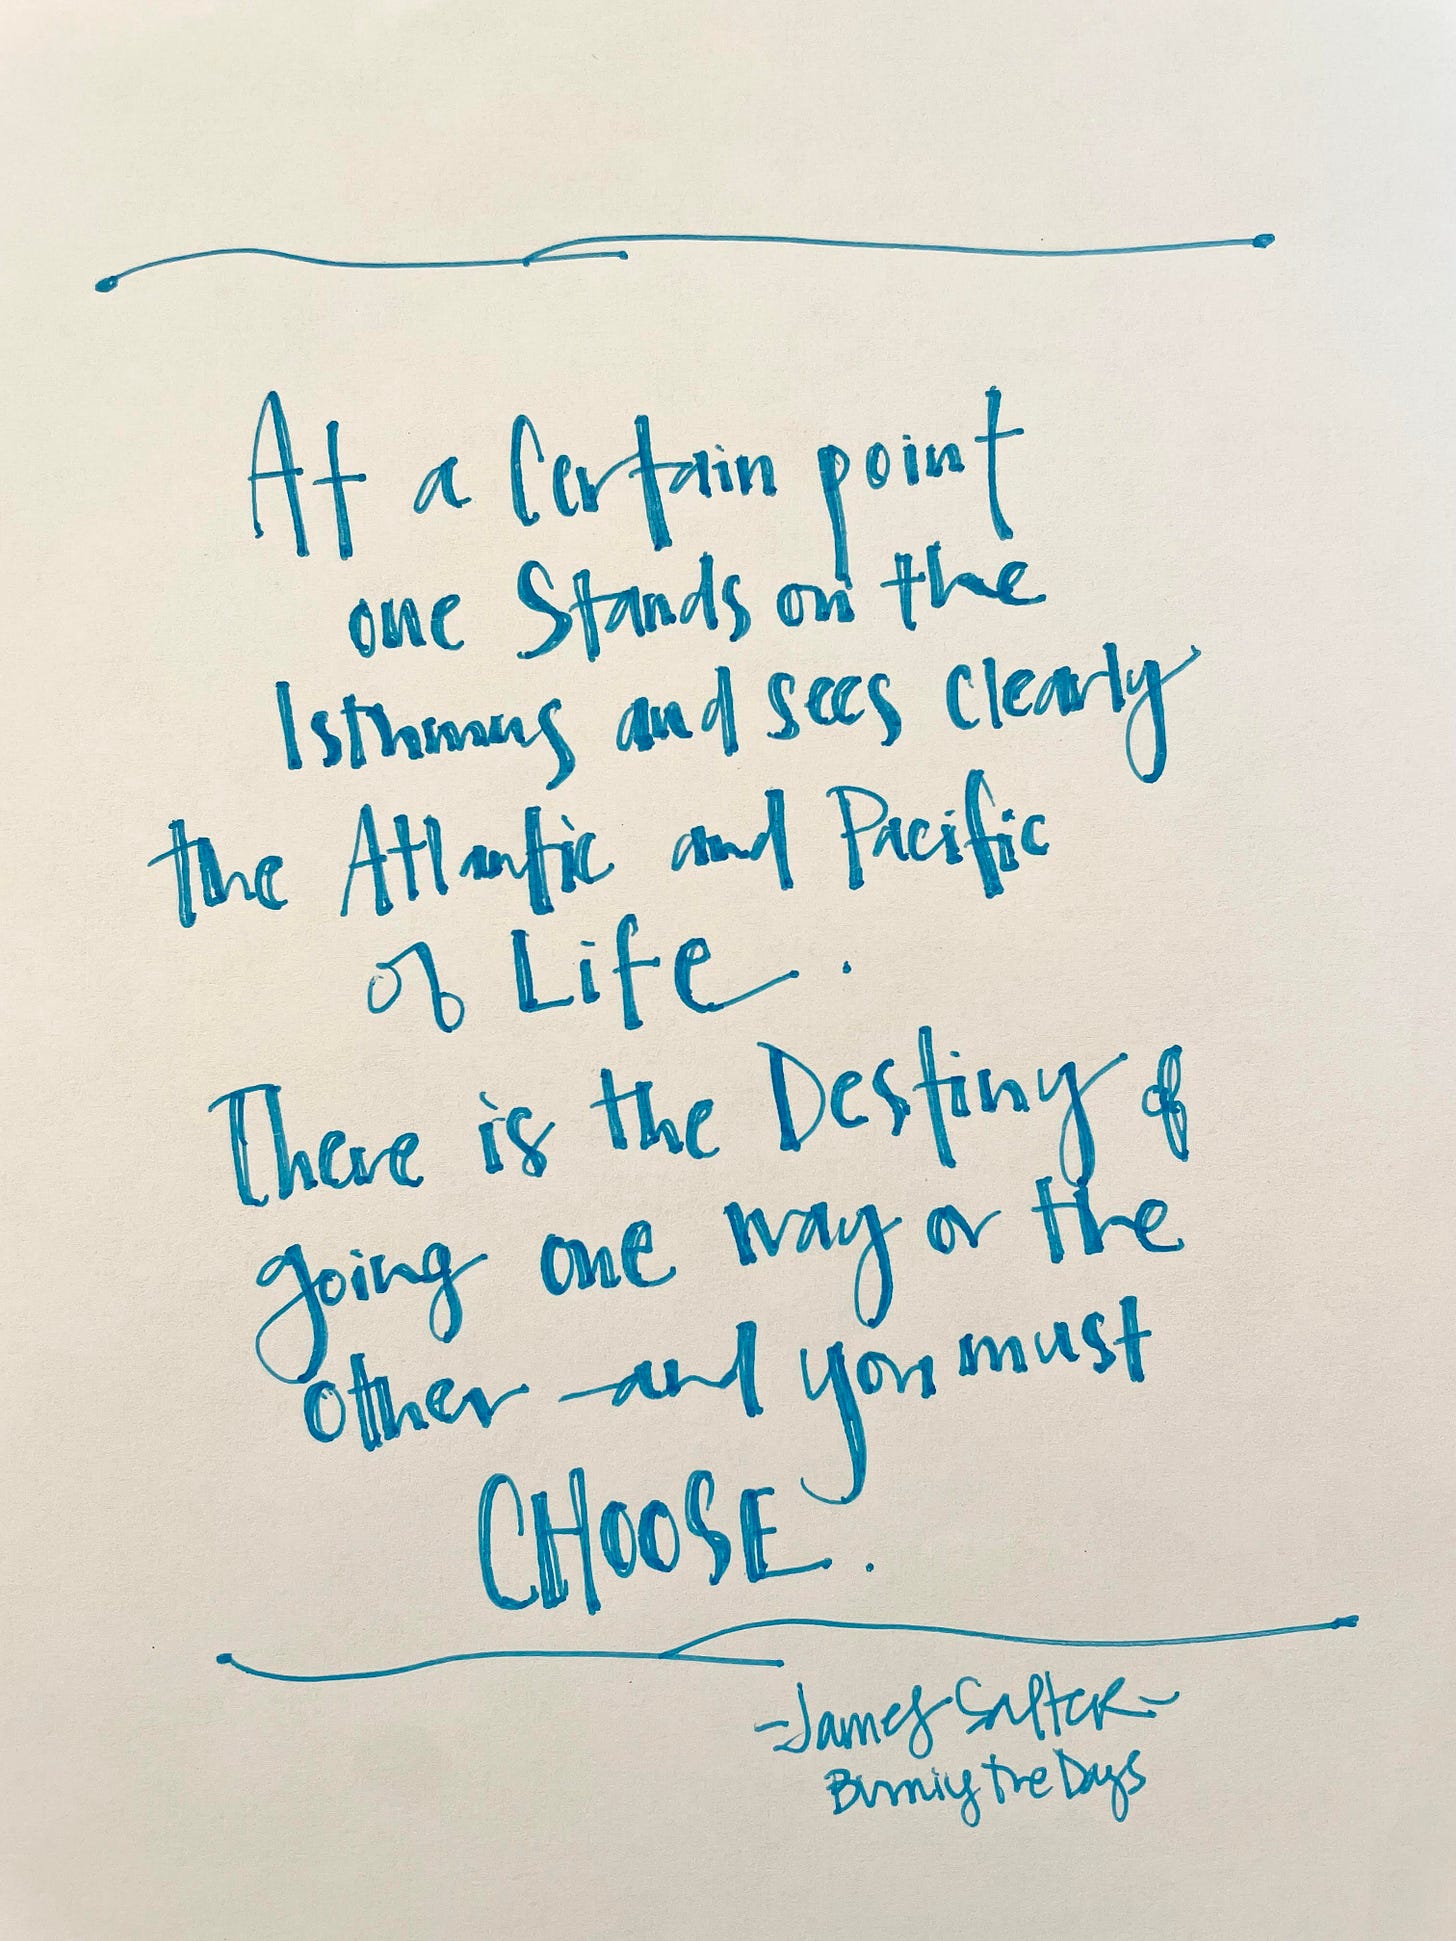 At a Certain point
one Stands on the
Isthmus and sees clearly
the Atlantic and Pacific
of Life.
There is the Destiny of
going one way or the
other – and you must
CHOOSE.
- James Salter -
Burning the Days